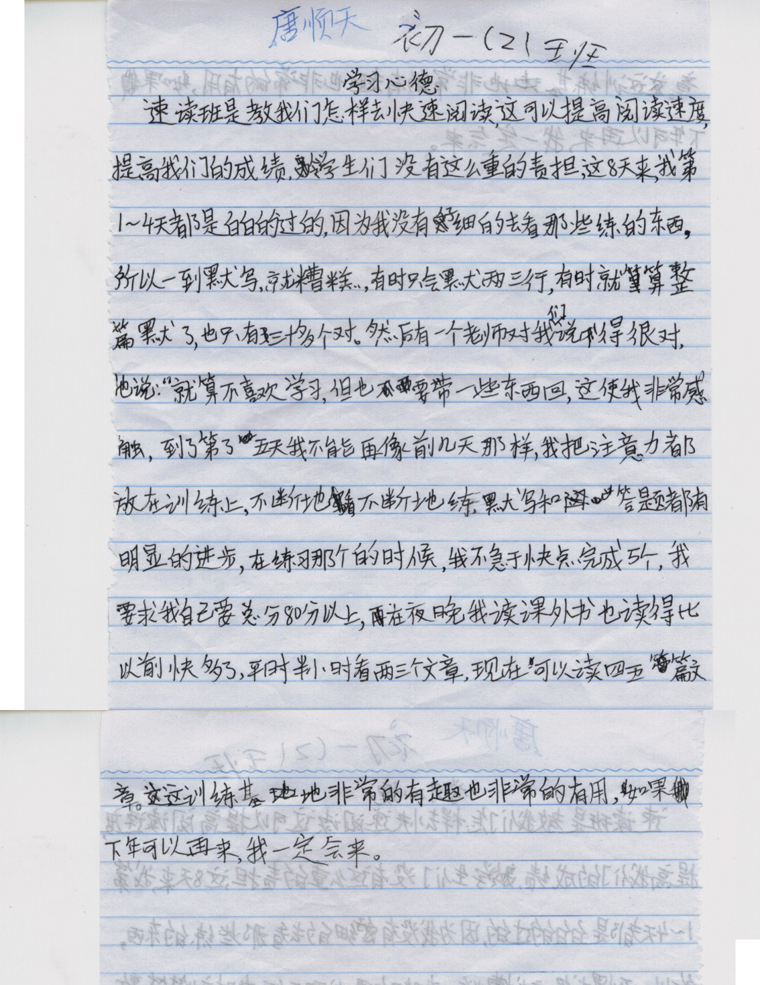 唐顺天 初一(2)王班
学习心德
速读班是教我们怎样去快速阅读,这可以提高阅读速度,
提高我们的成绩,学生们没有这么重的责担,这8天来,我第
1~4天都是白白的过的,因为我没有仔细的去看那些练的东西,
所以一到默写,就糟糕,有时只会默两三行,有时就算整
篇默了,也只有三十多个对。然后有一个老师对我们说得很对,
他说:“就算不喜欢学习,但也要带一些东西回,这使我非常感
触,到了第五天我不能再像前几天那样,我把注意力都
放在训练上,不断地不断地练,默写和答题都有
明显的进步,在练习那个的时候,我不急于快点完成5个,我
要求我自己要总分80分以上,在夜晚我读课外书也读得比
以前快多了,平时半小时看两三个文章,现在可以读四五篇文
章。这训练基地非常的有趣也非常的有用,如果
下年可以再来,我一定会来。